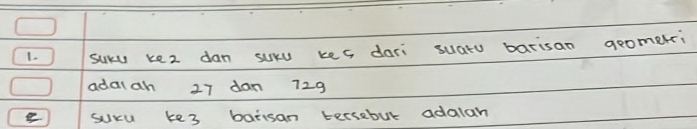 1. suku ke2 dan suku ke5 dari suatu barisan geometri
adalah 27 dan 729
suku ke3 barisan tersebut adalah